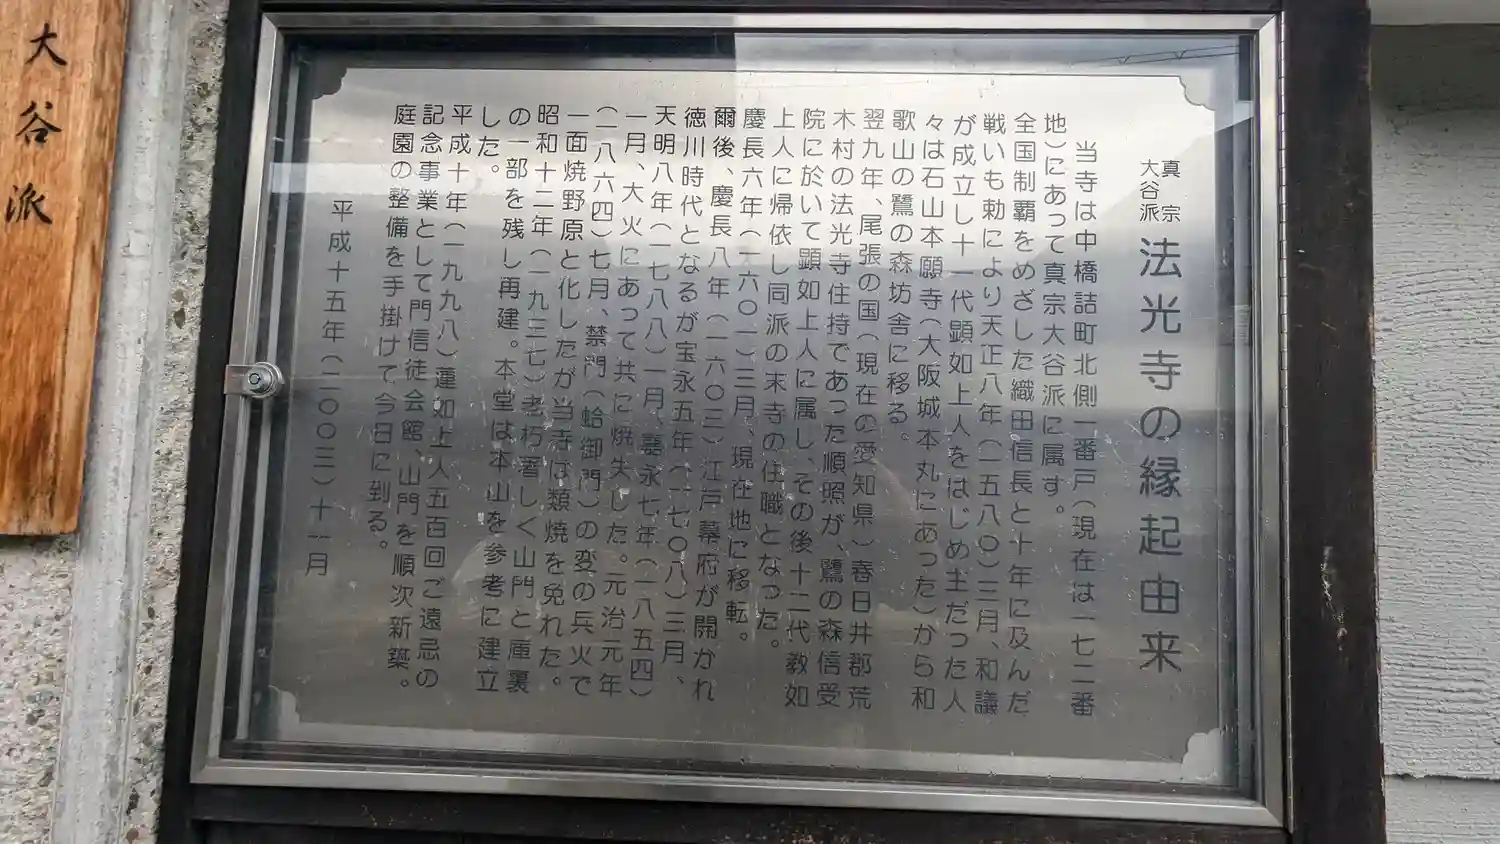 真宗
大谷派
法光寺の縁起由来
当寺は中橋詰町北側一番戸(現在は一七二番
地)にあって真宗大谷派に属す。
全国制覇をめざした織田信長と十年に及んだ
戦いも勅により天正八年(一五八〇)三月、和議
が成立し十一代顕如上人をはじめ主だった人
々は石山本願寺(大阪城本丸にあった)から和
歌山の鷺の森坊舎に移る。
翌九年、尾張の国(現在の愛知県)春日井郡荒
木村の法光寺住持であった順照が、鷺の森信受
院に於いて顕如上人に属し、その後十二代教如
上人に帰依し同派の末寺の住職となった。
慶長六年(一六〇一)三月、現在地に移転。
爾後、慶長八年(一六〇三)江戸幕府が開かれ
徳川時代となるが宝永五年(一七〇八)三月、
天明八年(一七八八)一月、嘉永七年(一八五四)
一月、大火にあって共に焼失した。元治元年
(一八六四)七月、禁門(蛤御門)の変の兵火で
一面焼野原と化したが当寺は類焼を免れた。
昭和十二年(一九三七)老朽著しく山門と庫裏
の一部を残し再建。本堂は本山を参考に建立
した。
平成十年(一九九八)蓮如上人五百回ご遠忌の
記念事業として門信徒会館、山門を順次新築。
庭園の整備を手掛けて今日に到る。
平成十五年(二〇〇三)十一月
大谷派